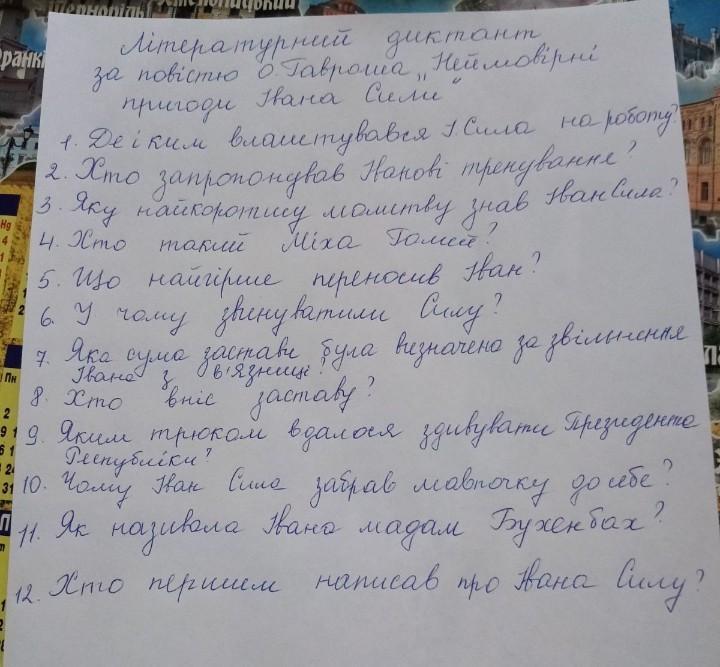 Тернопіль
Хмельницький
Франкі
Літературний диктант
за повістю О. Гавроша „Неймовірні
пригоди Івана Сили"
1. Де і ким влаштувався І. Сила на роботу?
2. Хто запропонував Іванові тренування?
3. Яку найкоротшу молитву знав Іван Сила?
4. Хто такий Міха Голем?
5. Що найгірше переносив Іван?
6. У чому звинуватили Силу?
7. Яка сума застави була визначена за звільнення
Івана з в'язниці?
8. Хто вніс заставу?
9. Яким трюком вдалося здивувати Президента
Республіки?
10. Чому Іван Сила забрав мавпочку до себе?
11. Як називала Івана мадам Бухенбах?
12. Хто першим написав про Івана Силу?
Пн